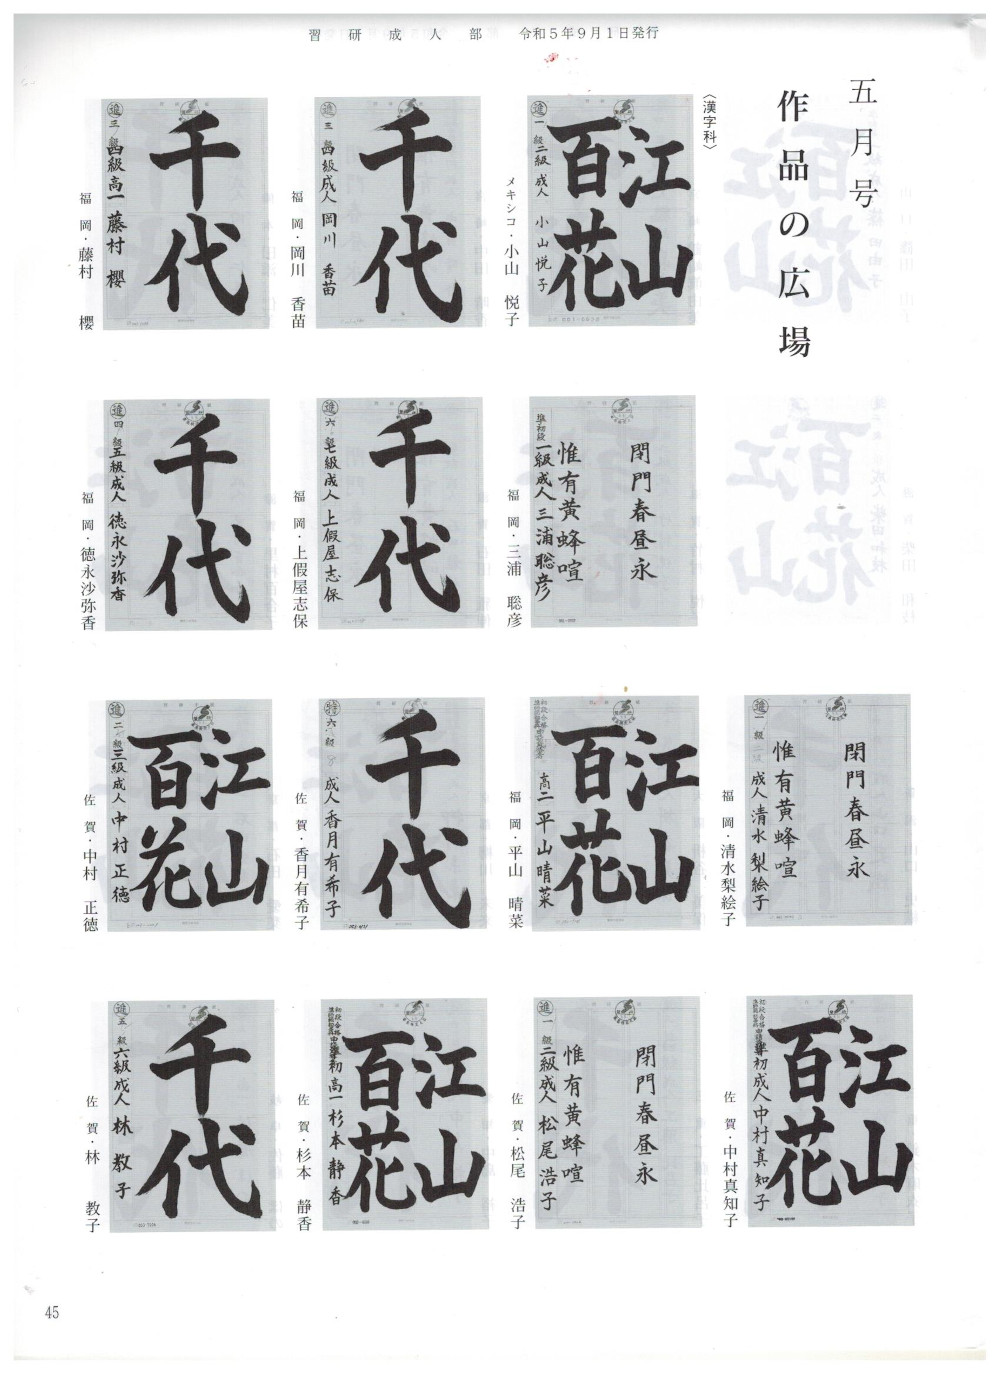 習研成人部 令和5年9月1日発行
五月号
作品の広場
〈漢字科〉
江山
百花
進 一級 二級 成人 小山悦子
メキシコ・小山 悦子
千代
三級 四級成人 岡川 香苗
福岡・岡川 香苗
千代
進 三級 四級高一 藤村 櫻
福岡・藤村 櫻
閉門春昼永
惟有黄蜂喧
準初段 一級成人 三浦聡彦
福岡・三浦 聡彦
千代
進 六級 七級成人 上假屋志保
福岡・上假屋志保
千代
進 四級 五級成人 徳永沙弥香
福岡・徳永沙弥香
閉門春昼永
惟有黄蜂喧
進 一級 二級 成人 清水梨絵子
福岡・清水梨絵子
江山
百花
高二 平山晴菜
福岡・平山 晴菜
千代
特 六級 8 成人 香月有希子
佐賀・香月有希子
江山
百花
進 二級 三級成人 中村正徳
佐賀・中村 正徳
江山
百花
準初成人 中村真知子
佐賀・中村真知子
閉門春昼永
惟有黄蜂喧
進 一級 二級成人 松尾浩子
佐賀・松尾 浩子
江山
百花
準初高一 杉本静香
佐賀・杉本 静香
千代
進 五級 六級成人 林 教子
佐賀・林 教子
45